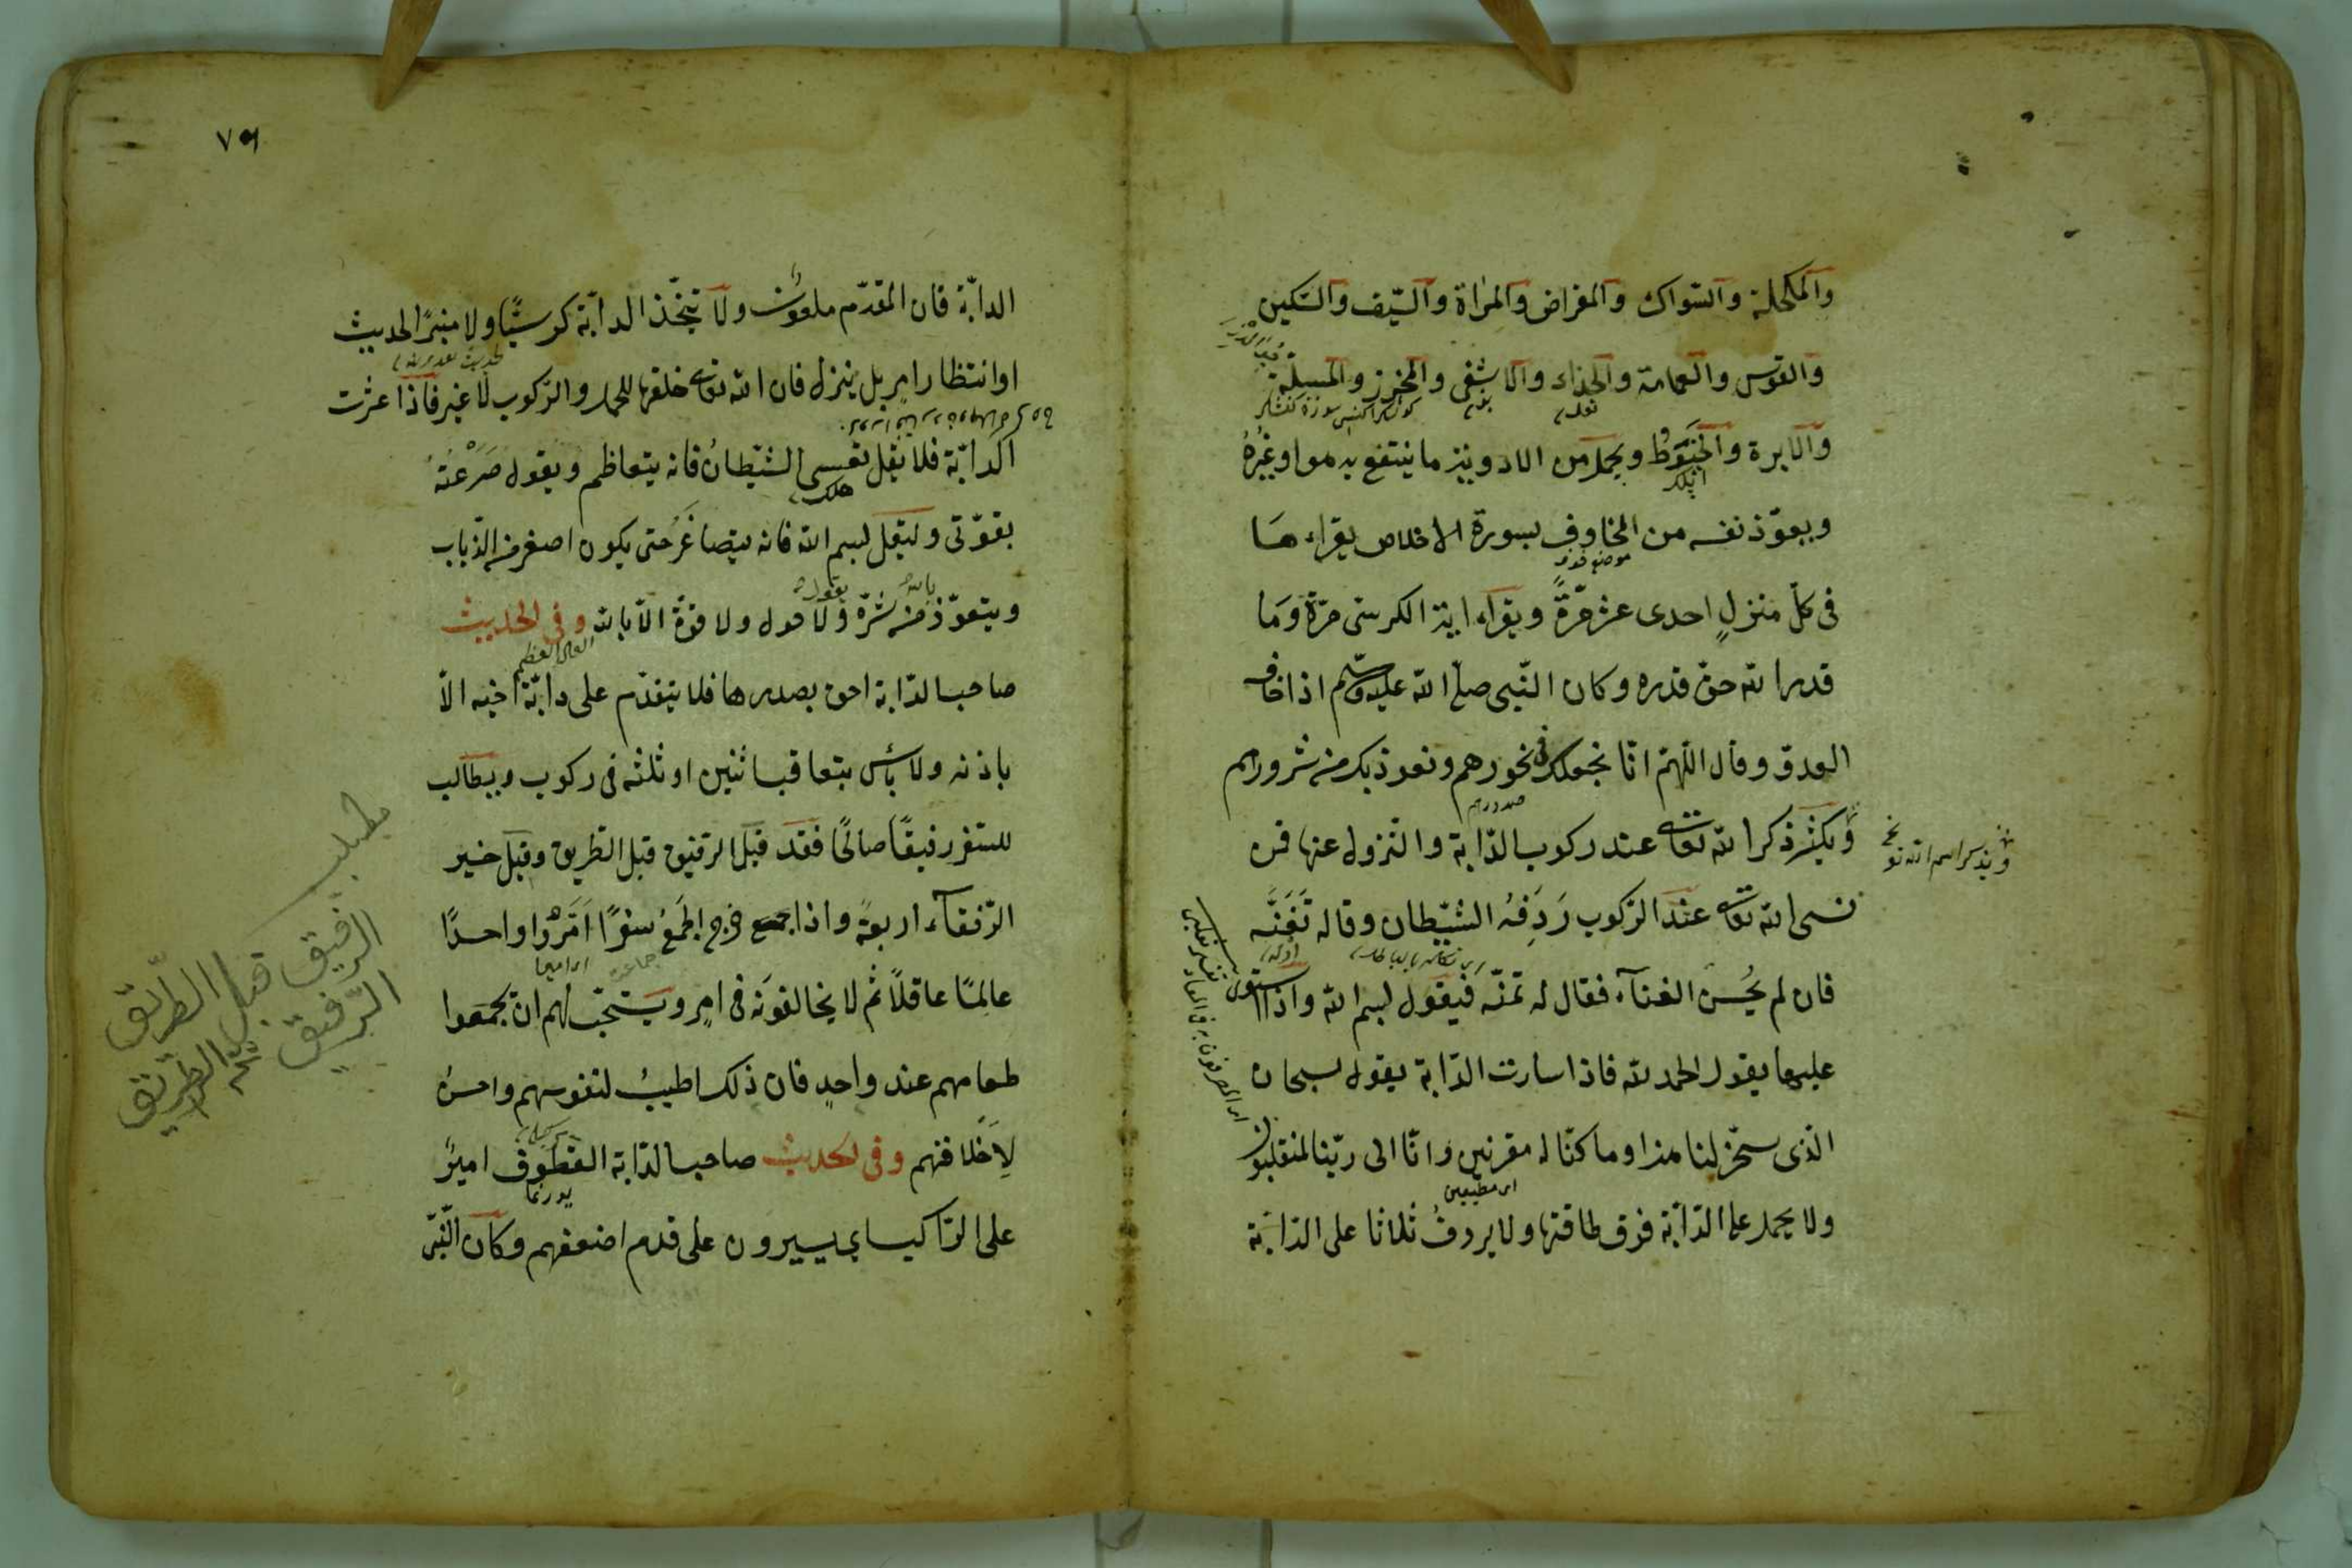 والمكحلة والسواك والمقراض والمرآة والسيف والسكين
والقوس والعمامة والحذاء والاشفى والمخرز والمسلة
والابرة والخيوط ويحمل من الادوية ما ينتفع به هو او غيره
ويعوّذ نفسه من المخاوف بسورة الاخلاص يقراءها
فى كلّ منزلٍ احدى عشر مرّةً ويقراء اية الكرسى مرّة وما
قدروا لله حق قدره وكان النّبى صلّى الله عليه وسلّم اذا خاف
العدوّ وقال اللّهمّ انّا نجعلك فى نحورهم ونعوذ بك من شرورهم
صدورهم
ويكثر ذكر الله تعالى عند ركوب الدّابة والنزول عنها فمن
ويذكر اسم الله تع
نسى الله تعالى عند الركوب رَدِفَهُ الشّيطان وقال له تَغَنَّه
فان لم يُحسن الغناء فقال له تمنّه فيقول بسم الله واذا استوى
عليها يقول الحمد لله فاذا سارت الدّابة يقول سبحان
الّذى سخّر لنا هذا وما كنّا له مقرنين وانّا الى ربّنا لمنقلبون
اى مطيعين
ولا يحمل على الدّابّة فوق طاقتها ولا يردف ثلاثا على الدّابّة
الدابّة فان المقدّم ملعون ولا يتّخذ الدابّة كرسيًّا ولا منبرًا لحديث
او انتظار امر بل ينزل فان الله تعالى خلقها للحمل والركوب لا غير فاذا عثرت
الدابّة فلا يقل تعس الشّيطانُ فانه يتعاظم ويقول صَرَعْتهُ
هلك
بقوّتى وليقل بسم الله فانه يتصاغر حتى يكون اصغر من الذّباب
ويتعوّذ بالله من شرّه ويقول لا حول ولا قوّة الّا بالله وفى الحديث
العلى العظيم
صاحب الدّابة احق بصدرها فلا يتقدّم على دابّة اخيه الّا
باذنه ولا بأس بتعاقب اثنين او ثلثه فى ركوب ويطالب
للسّفر رفيقًا صالحًا فقد قيل الرفيق قبل الطّريق وقيل خير
الرّفقاء اربعةٌ واذا خرج الجَمعُ سفرًا اَمَّرُوا واحدًا
جماعة
عالمًا عاقلًا ثم لا يخالفونه فى امرٍ ويستحبّ لهم ان يجمعوا
طعامهم عند واحدٍ فان ذلك اطيبُ لنفوسهم واحسنُ
لِاَخلاقهم وفى الحديث صاحب الدّابة القطوف اميرٌ
على الرّاكب اى يسيرون على قدم اضعفهم وكان النّبى
مطلب
الرفيق قبل الطريق
الرّفيق ثم الطريق